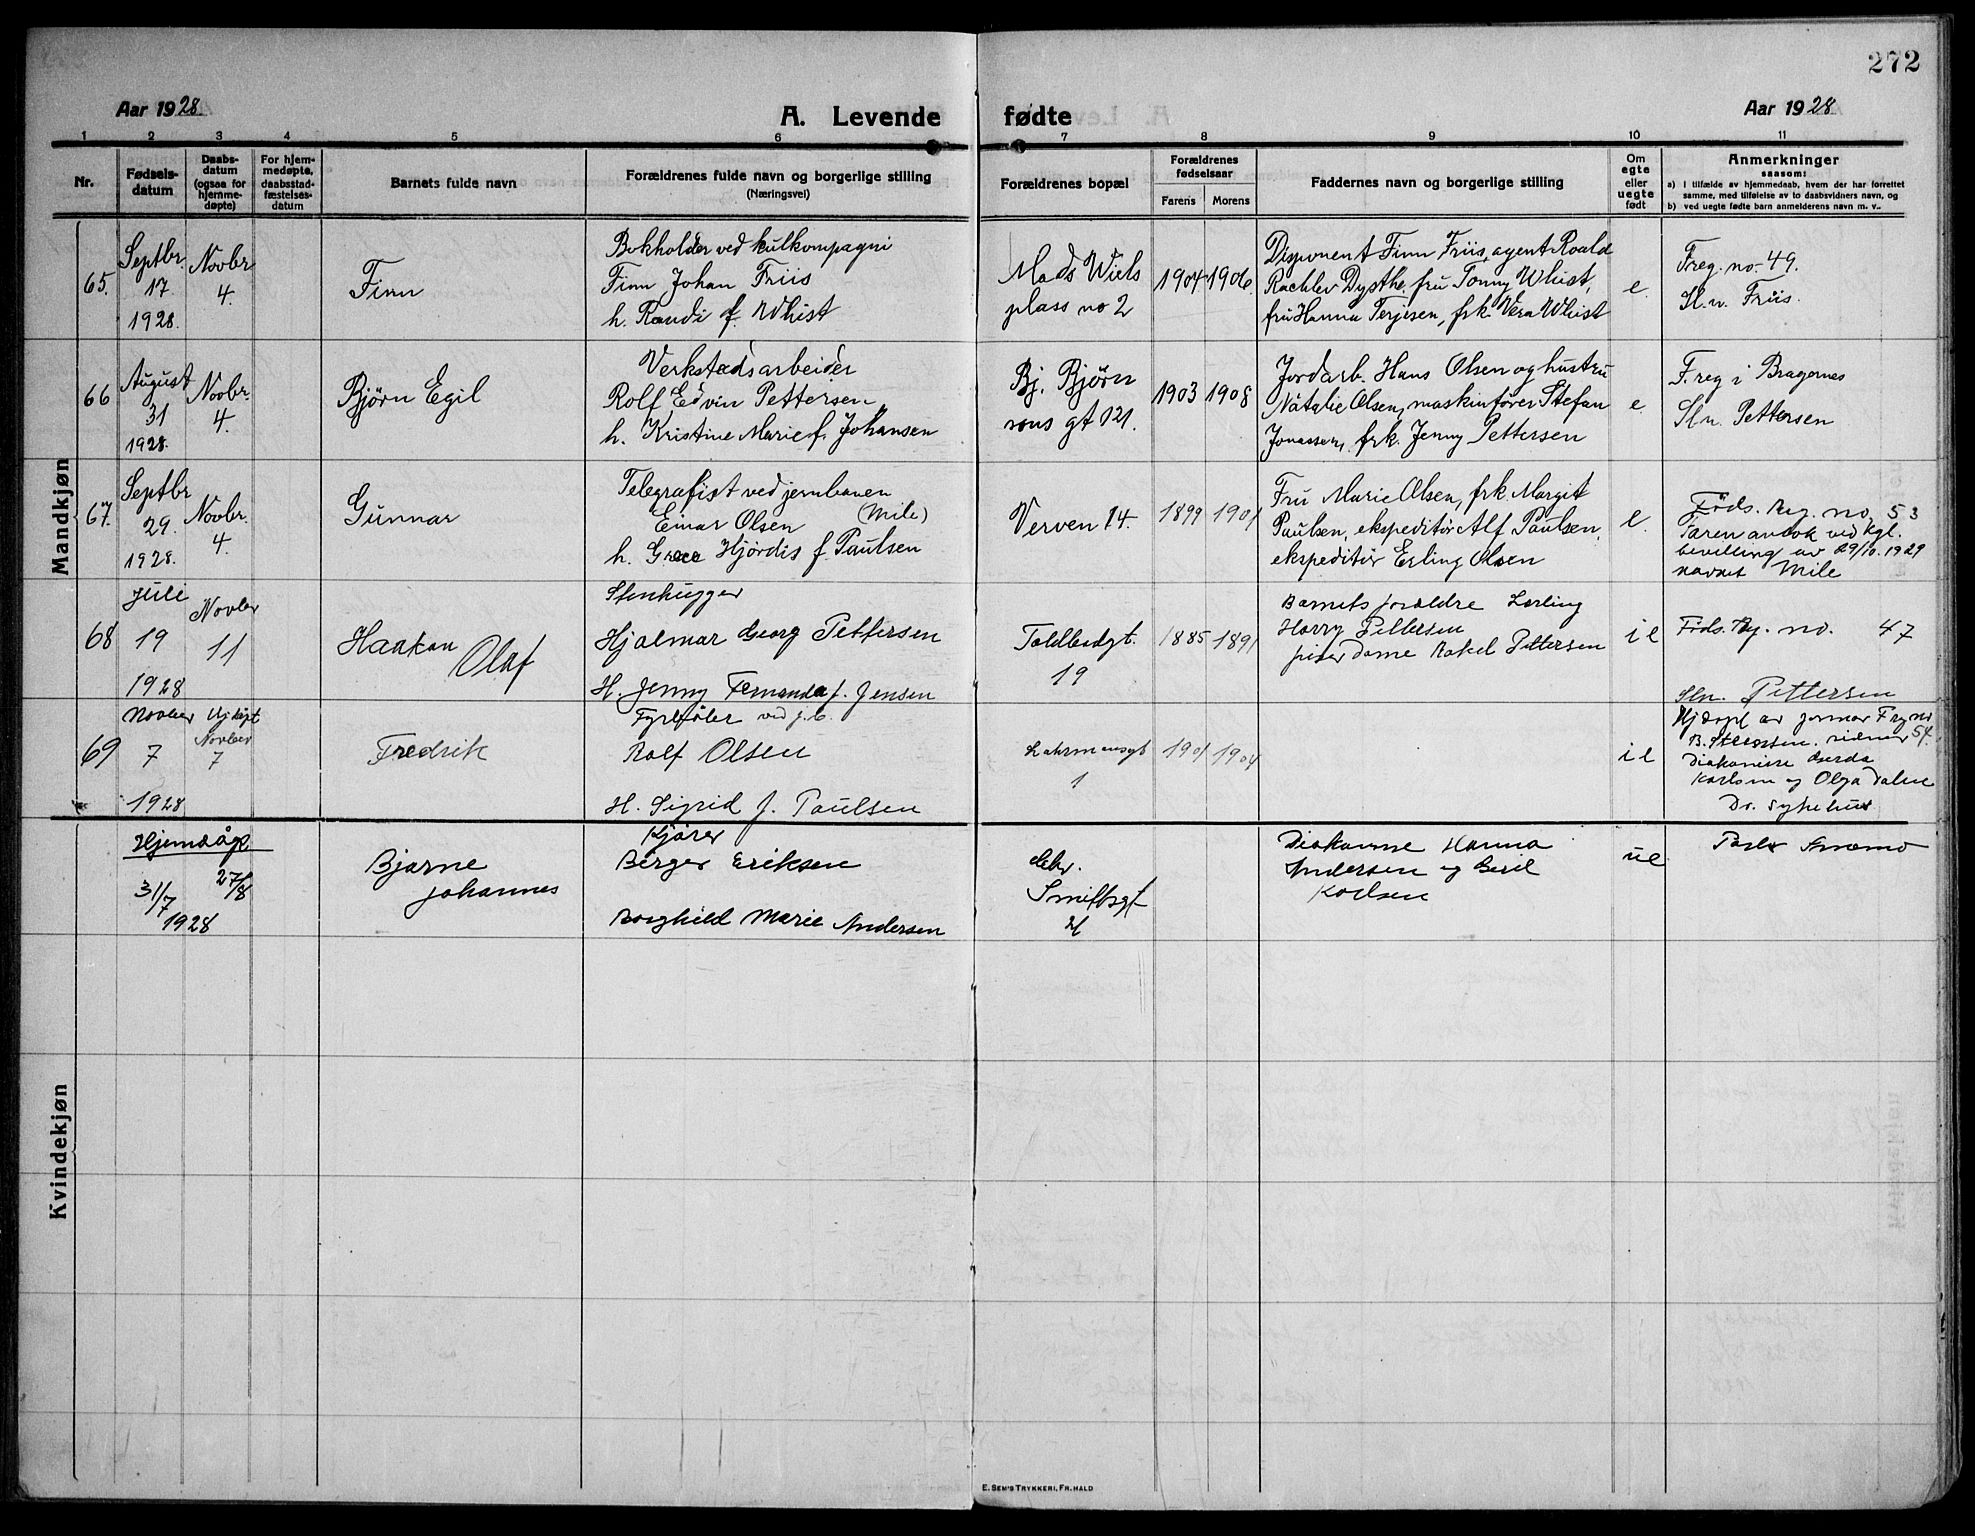 272
Aar 1928.
A. Levende fødte
Aar 1928
1 2 3 4 5 6 7 8 9 10 11
Nr.
Fødsels-
datum
Daabs-
datum
(ogsaa for
hjemme-
døpte)
For hjem-
medøpte,
daabsstad-
fæstelses-
datum
Barnets fulde navn
Forældrenes fulde navn og borgerlige stilling
(Næringsvei)
Forældrenes bopæl
Forældrenes
fødselsaar
Farens Morens
Faddernes navn og borgerlige stilling
Om
egte
eller
uegte
født
Anmerkninger
saasom:
a) I tilfælde av hjemmedaab, hvem der har forrettet
samme, med tilføielse av to daabsvidners navn, og
b) ved uegte fødte barn anmelderens navn m. v..
Mandkjøn
65.
Septbr.
17
1928.
Novbr
4.
Finn
Bokholder ved kulkompagni
Finn Johan Friis
h. Randi f. Whist
Mads Wiels
plass no 2
1904 1906.
Disponent Finn Friis, agent Roald
Rachlev Dysthe, fru Tonny Whist,
fru Hanna Terjesen, frk. Vera Whist
e.
F.reg. no. 49.
Sl.n. Friis.
66
August
31
1928.
Novbr.
4.
Bjørn Egil
Verkstedsarbeider
Rolf Edvin Pettersen
h. Kristine Marie f. Johansen
Bj. Bjørn
sons gt 121.
1903 1908
Jordarb. Hans Olsen og hustru
Natalie Olsen, maskinfører Stefan
Jonassen, frk. Jenny Pettersen
e.
F.reg i Bragernes
Sl.n. Pettersen
67.
Septbr
29.
1928.
Novbr.
4.
Gunnar
Telegrafist ved jernbanen
Einar Olsen (Mile)
h. Grace Hjördis f. Paulsen
Verven 14.
1899 1901
Fru Marie Olsen, frk. Margit
Paulsen, ekspeditør Alf Paulsen,
ekspeditør Erling Olsen
e.
Föds. reg. no. 53
Faren antok ved kgl.
bevilling av 29/10.1929
navnet Mile
68
Juli
19
1928
Novber
11
Haakon
Olaf
Stenhugger
Hjalmar Georg Pettersen
H. Jenny Fernanda f. Jensen
Toldbodgt.
19
1885 1891
Barnets forældre Lærling
Harry Pettersen
Dame Rakel Pettersen
Föds. Reg. no. 47
Sln. Pettersen
69
Novber
7
1928
Hj.døpt
Novber
7
Fredrik
Fyrbøter ved j.b.
Rolf Olsen
H. Sigrid f. Paulsen
1
1901 1904
Hj.døpt av jormor F.r.g no
54.
Diakonisse Gerda
Karlsen og Olga Dalne
Dr. Sykehus
Kvindekjøn
Hjemdåp
31/7
1928
27/8
Bjarne
Johannes
Kjører
Birger Eriksen
Borghild Marie Andersen
Smithsgt
Diakonisse Hanna
Andersen og Beril
Karlsen
ue
E. Sem's Trykkeri, Fr.hald